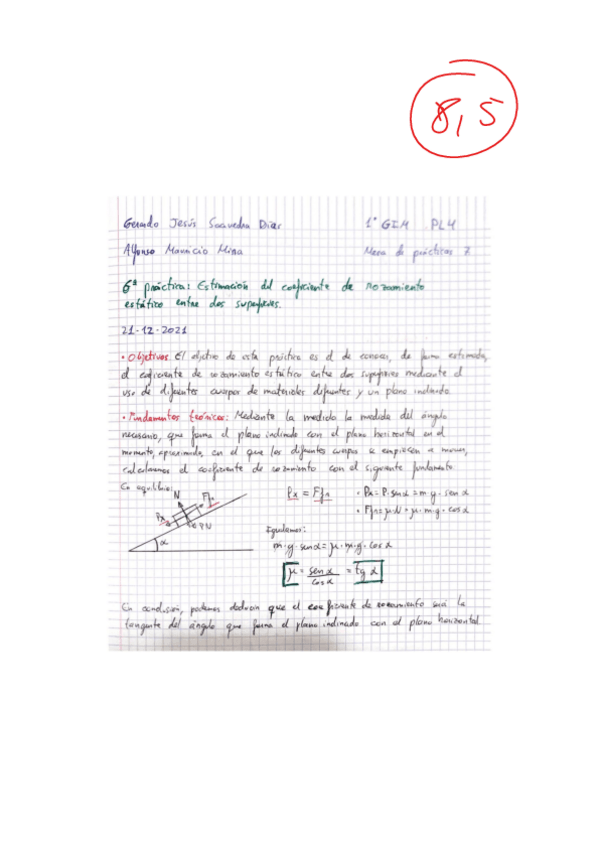 8,5
Gerardo Jesús Saavedra Díaz 1º GIM PL4
Alfonso Mauricio Mina Mesa de prácticas 7
6ª práctica: Estimación del coeficiente de rozamiento
estático entre dos superficies.
21-12-2021
• Objetivos: El objetivo de esta práctica es el de conocer, de forma estimada,
el coeficiente de rozamiento estático entre dos superficies mediante el
uso de diferentes cuerpos de materiales diferentes y un plano inclinado.
• Fundamentos teóricos: Mediante la medida la medida del ángulo
necesario, que forma el plano inclinado con el plano horizontal en el
momento, aproximado, en el que los diferentes cuerpos se empiezan a mover,
calculamos el coeficiente de rozamiento con el siguiente fundamento.
En equilibrio:
N
Px
PN
α
Px = Ffr
• Px = P·senα = m·g·senα
• Ffr = μ·N = μ·m·g·cosα
Igualamos:
m·g·senα = μ·m·g·cosα
μ = senα / cosα = tg α
En conclusión, podemos deducir que el coeficiente de rozamiento será la
tangente del ángulo que forma el plano inclinado con el plano horizontal